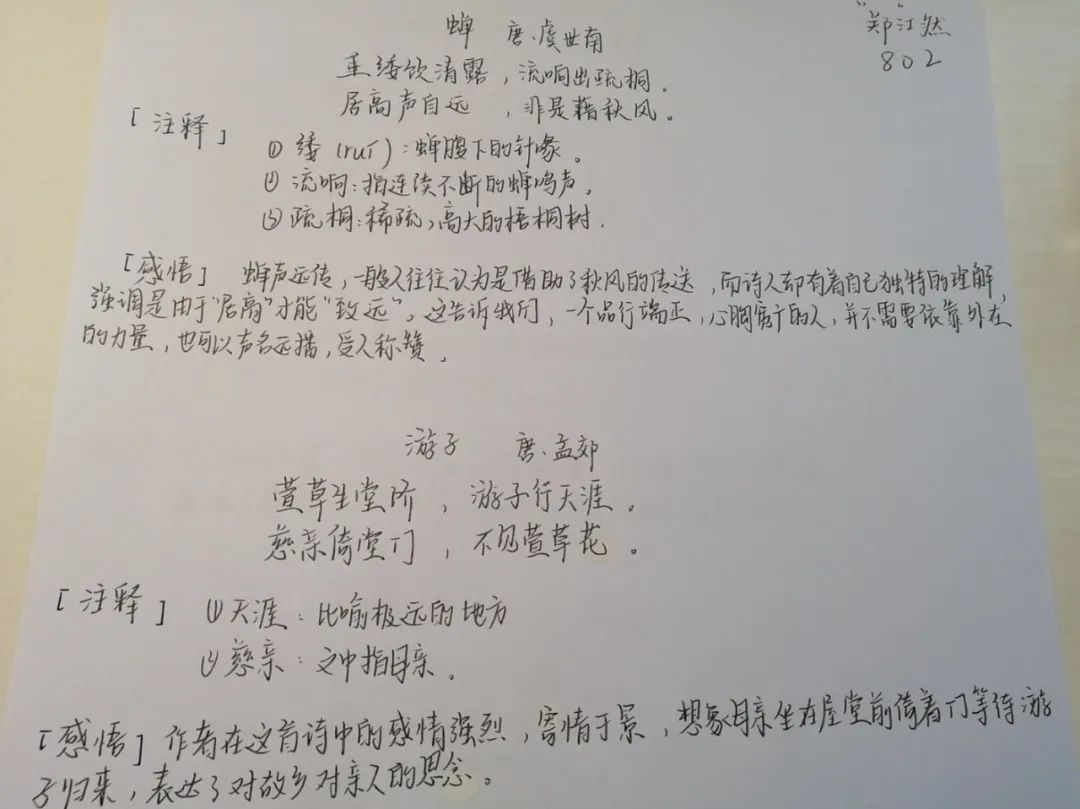 蝉 唐·虞世南
郑江然
802
垂緌饮清露，流响出疏桐。
居高声自远，非是藉秋风。
「注释」
① 緌（ruí）：蝉腹下的针喙。
② 流响：指连续不断的蝉鸣声。
③ 疏桐：稀疏、高大的梧桐树.
「感悟」 蝉声远传，一般人往往认为是借助了秋风的传送，而诗人却有着自己独特的理解，
强调是由于"居高"才能"致远"。这告诉我们，一个品行端正，心胸宽广的人，并不需要依靠外在
的力量，也可以声名远播，受人称赞。
游子 唐·孟郊
萱草生堂阶，游子行天涯。
慈亲倚堂门，不见萱草花。
「注释」
① 天涯：比喻极远的地方
② 慈亲：文中指母亲。
「感悟」作者在这首诗中的感情强烈，寄情于景，想象母亲坐在屋堂前倚着门等待游
子归来，表达了对故乡对亲人的思念。